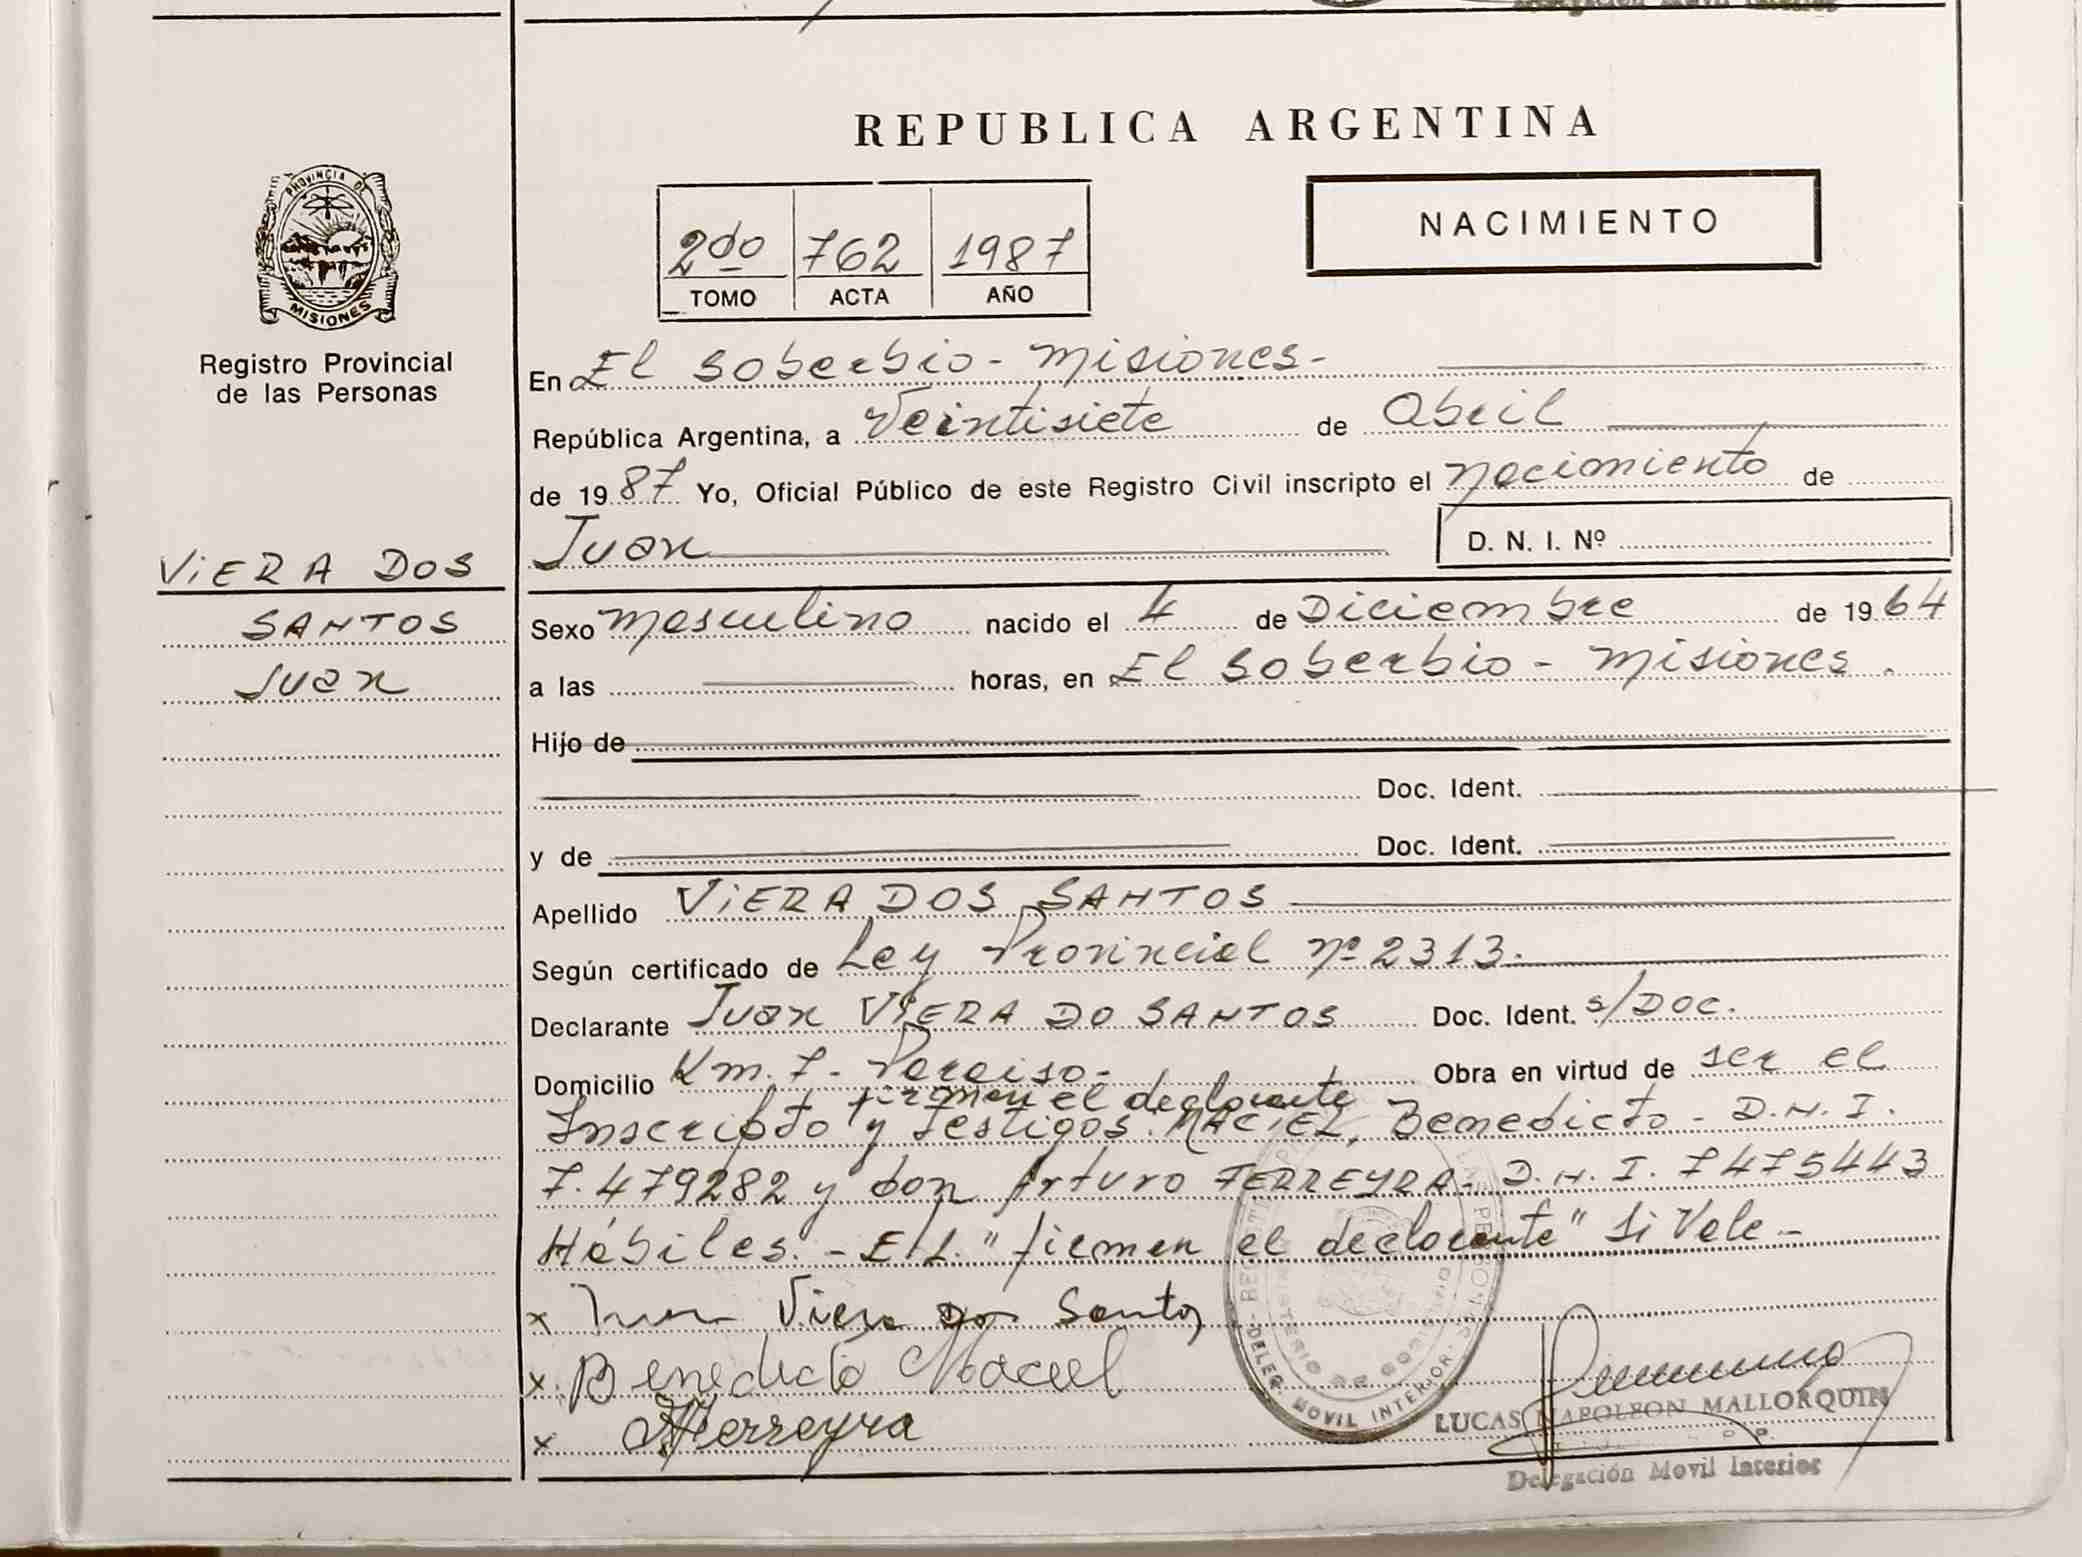 REPUBLICA ARGENTINA
PROVINCIA DE
MISIONES
Registro Provincial
de las Personas
2do 762 1987
TOMO ACTA AÑO
NACIMIENTO
En El Soberbio - Misiones -
República Argentina, a Veintisiete de Abril
de 1987 Yo, Oficial Público de este Registro Civil inscripto el Nacimiento de
Juan D. N. I. Nº
VIERA DOS
SANTOS
Juan
Sexo Masculino nacido el 4 de Diciembre de 1964
a las horas, en El Soberbio - Misiones.
Hijo de
Doc. Ident.
y de Doc. Ident.
Apellido VIERA DOS SANTOS
Según certificado de Ley Provincial Nº 2313.
Declarante Juan VIERA DO SANTOS Doc. Ident. s/DOC.
Domicilio Km. 7 - Paraiso - Obra en virtud de ser el
firman el declarante
Inscripto y testigos MACIEL, Benedicto - D.N.I.
7.479282 y don Arturo FERREYRA - D.N.I. 7475443
Hábiles. - E/L. "firman el declarante" Si Vale -
x Juan Viera dos Santos
x Benedicto Maciel
x AFerreyra
MOVIL INTERIOR
LUCAS NAPOLEON MALLORQUIN
Delegación Movil Interior